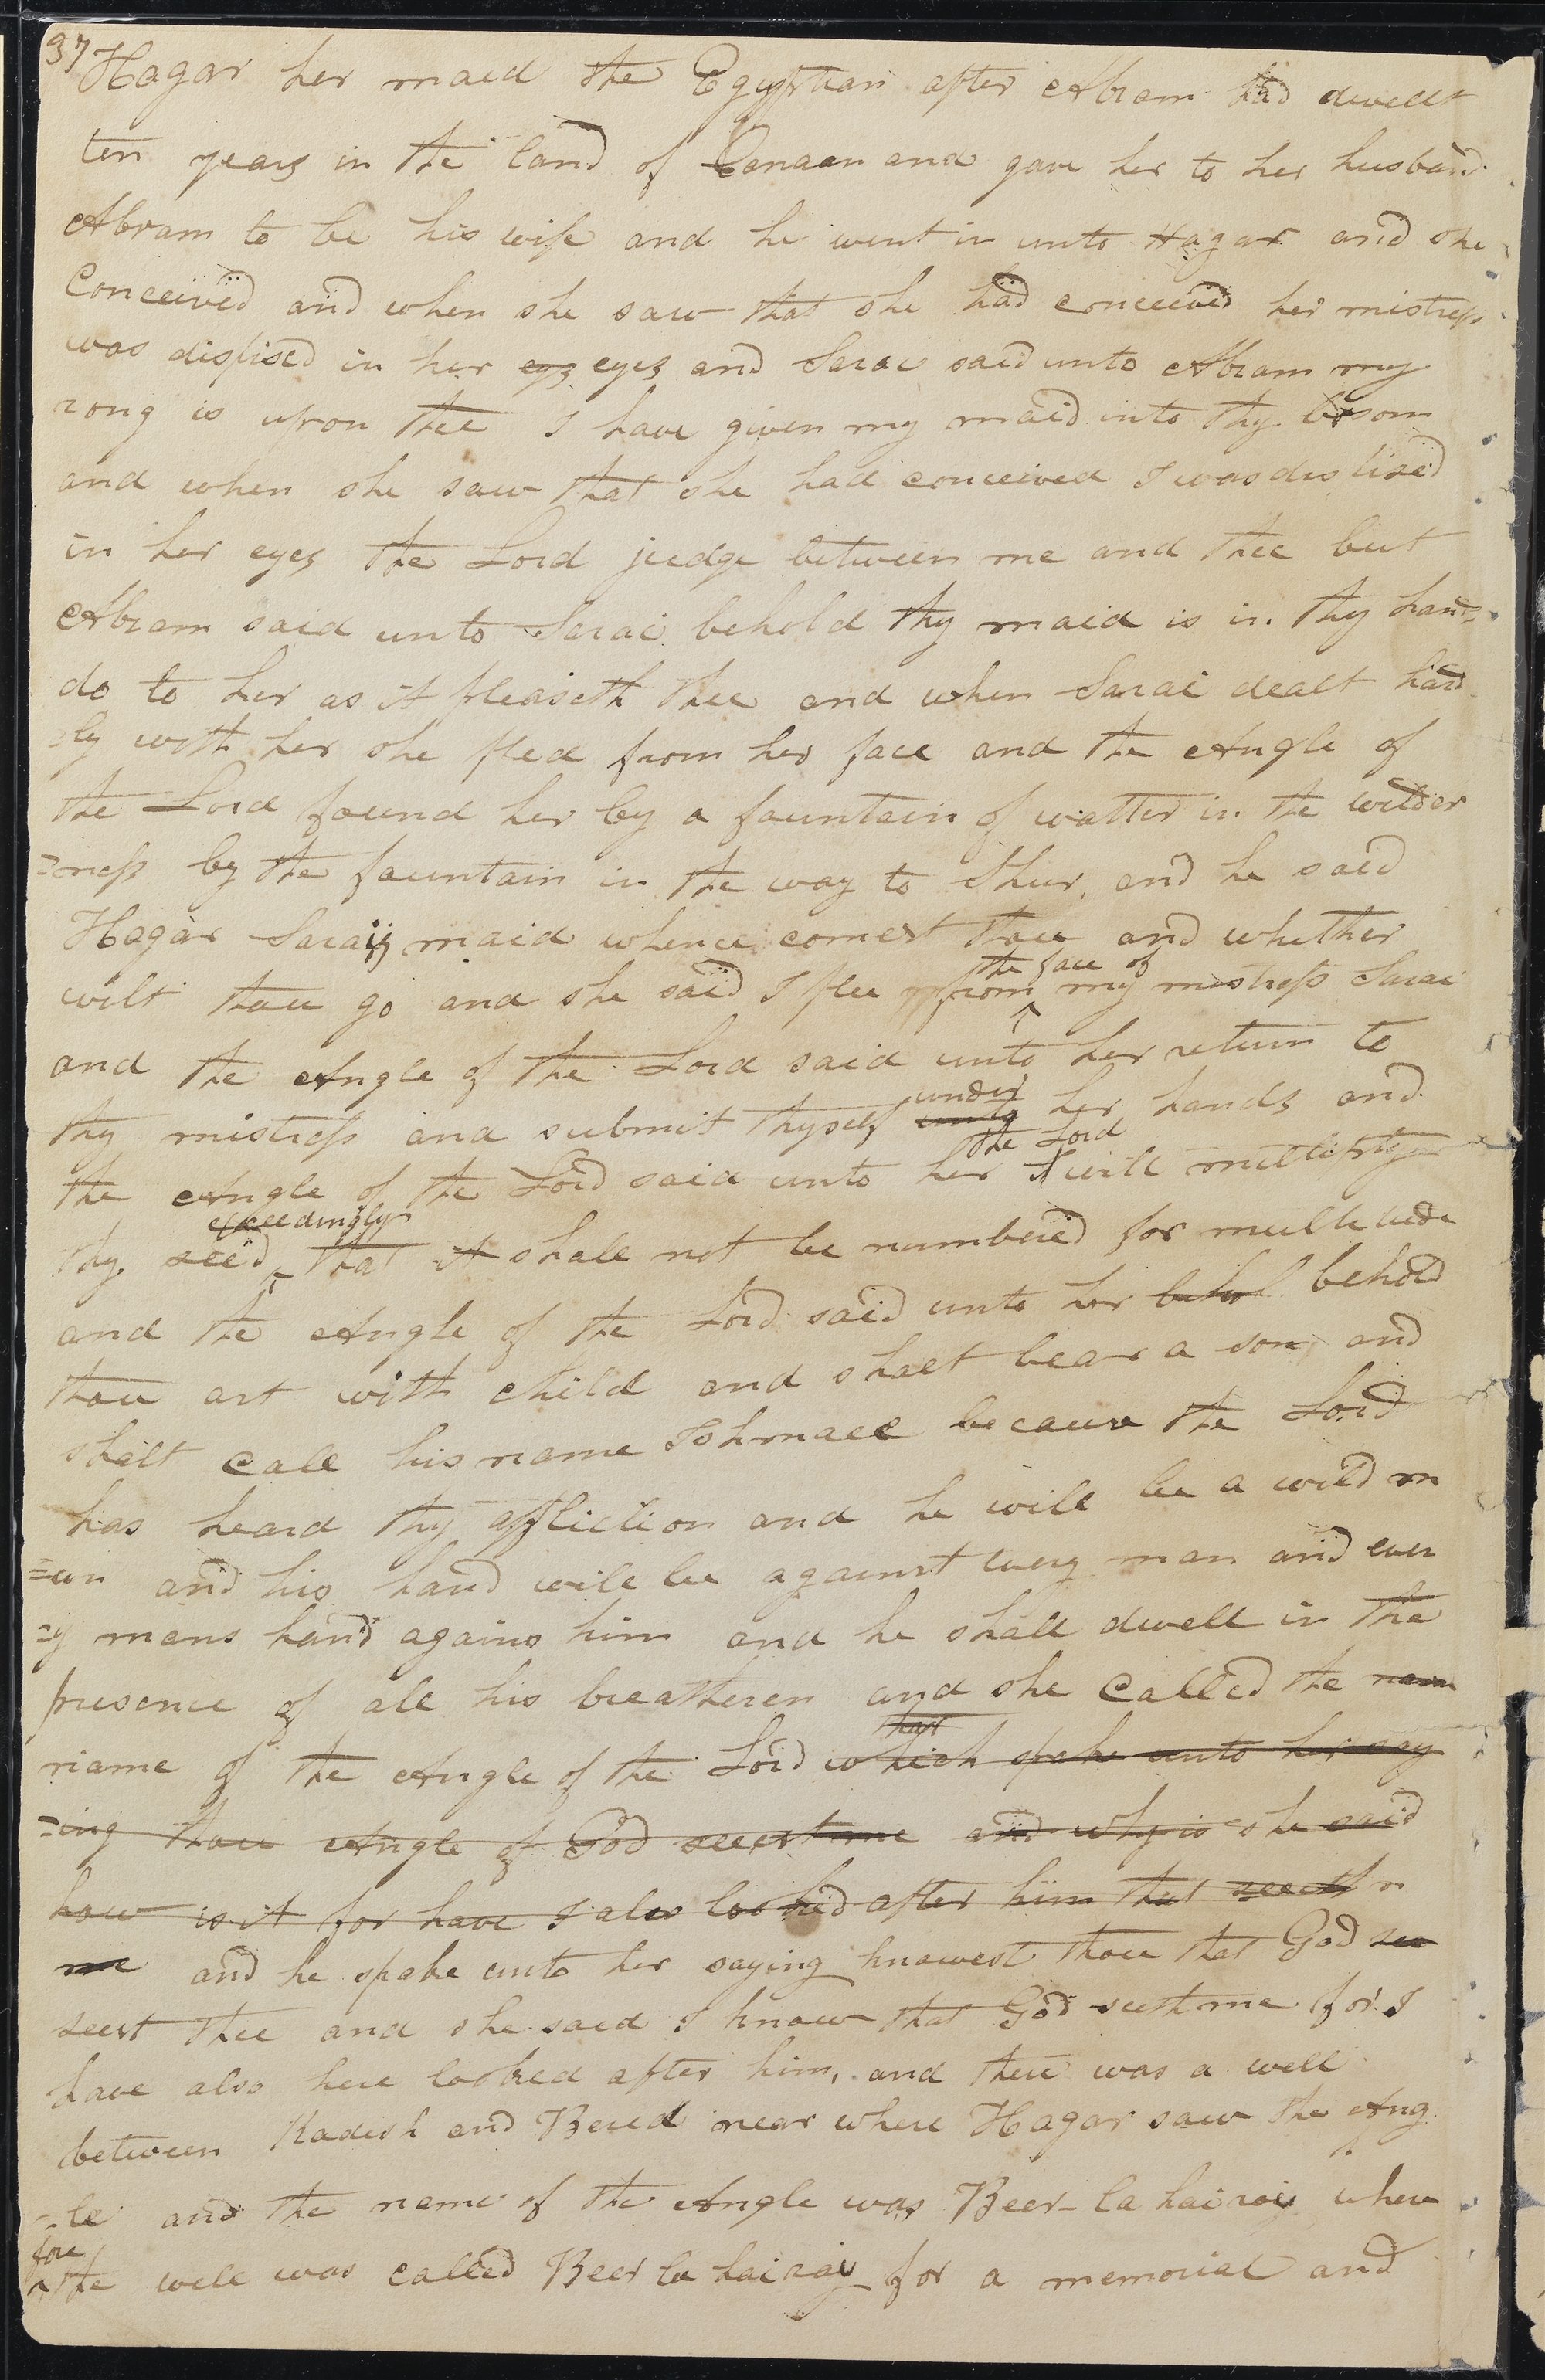 37
Hagar her maid the Egyptian after Abram had dwellt
ten years in the land of Canaan and gave her to her husband
Abram to be his wife and he went in unto Hagar and she
Conceived and when she saw that she had conceived her mistress
was dispised in her eys eyes and Sarai said unto Abram my
rong is upon thee I have given my maid into thy bosom
and when she saw that she had conceived I was dis lised
in her eyes the Lord judge between me and thee but
Abram said unto Sarai behold thy maid is in thy hand
do to her as it pleaseth thee and when Sarai dealt hard
-ly with her she fled from her face and the Angle of
the Lord found her by a fountain of watter in the wilder
=ness by the fountain in the way to Shur, and he said
Hagar Sarais maid whence comest thou and whether
the face of
wilt thou go and she said I flee from my mistress Sarai
and the Angle of the Lord said unto her return to
under
thy mistress and submit thyself unto her hands and
the Lord
the Angle of the Lord said unto her I will multiply
exceedingly
thy seed that it shall not be numbered for multitude
and the Angle of the Lord said unto her behol behold
thou art with child and shalt bear a son and
shalt call his name Ishmael because the Lord
has heard thy affliction and he will be a wild m
=an and his hand will be against every man and ever
=y mans hand agains him and he shall dwell in the
presence of all his breatheren and she called the nam
that
name of the Angle of the Lord which spake unto her say
=ing thou Angle of God seest me and why is she said
how is it for have I also looked after him that seeth m
me and he spake unto her saying knowest thou that God see
seest thee and she said I know that God seest me for I
have also here looked after him, and there was a well
between Kadesh and Bered near where Hagar saw the Ang
-le and the name of the Angle was Beer-la hairoy where
fore
the well was called Beer la hairoy for a memorial and